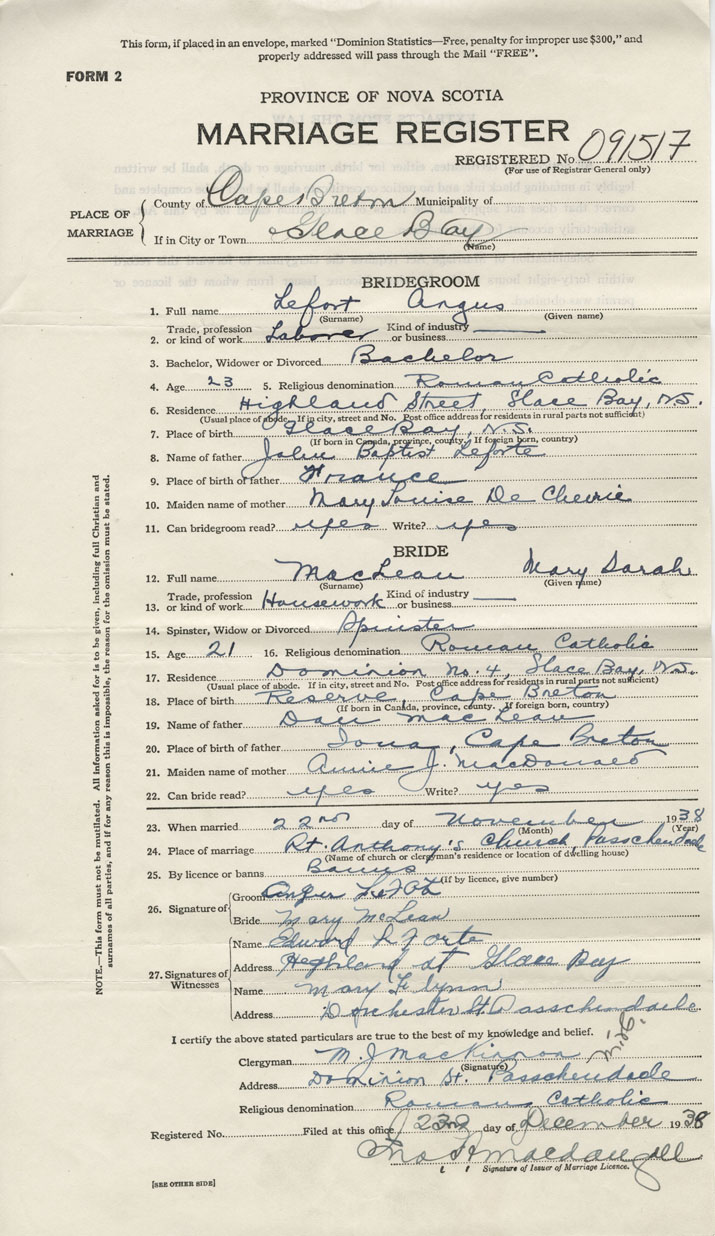 This form, if placed in an envelope, marked "Dominion Statistics—Free, penalty for improper use $300," and
properly addressed will pass through the Mail "FREE".
FORM 2
PROVINCE OF NOVA SCOTIA
MARRIAGE REGISTER
REGISTERED No. 091517
(For use of Registrar General only)
PLACE OF MARRIAGE
County of Cape Breton Municipality of
If in City or Town Glace Bay
(Name)
BRIDEGROOM
1. Full name Lefort Angus
(Surname) (Given name)
2. Trade, profession or kind of work Laborer Kind of industry or business
3. Bachelor, Widower or Divorced Bachelor
4. Age 23 5. Religious denomination Roman Catholic
6. Residence Highland Street, Glace Bay, N.S.
(Usual place of abode. If in city, street and No. Post office address for residents in rural parts not sufficient)
7. Place of birth Glace Bay, N.S.
(If born in Canada, province, county. If foreign born, country)
8. Name of father John Baptist Leforte
9. Place of birth of father France
10. Maiden name of mother Mary Louise De Chevrie
11. Can bridegroom read? yes Write? yes
BRIDE
12. Full name MacLean Mary Sarah
(Surname) (Given name)
13. Trade, profession or kind of work Housework Kind of industry or business
14. Spinster, Widow or Divorced Spinster
15. Age 21 16. Religious denomination Roman Catholic
17. Residence Dominion No. 4, Glace Bay, N.S.
(Usual place of abode. If in city, street and No. Post office address for residents in rural parts not sufficient)
18. Place of birth Reserve, Cape Breton
(If born in Canada, province, county. If foreign born, country)
19. Name of father Dan MacLean
20. Place of birth of father Iona, Cape Breton
21. Maiden name of mother Annie J. MacDonald
22. Can bride read? yes Write? yes
23. When married 22nd day of November 1938
(Month) (Year)
24. Place of marriage St. Anthony's Church Passchendale
(Name of church or clergyman's residence or location of dwelling house)
25. By licence or banns Banns
(If by licence, give number)
26. Signature of
Groom Angus
Bride Mary McLean
27. Signatures of Witnesses
Name Edward
Address Highland st Glace Bay
Name Mary Flynn
Address Dorchester St. Passchendaele
I certify the above stated particulars are true to the best of my knowledge and belief.
Clergyman M. J. MacKinnon
(Signature)
Address Dominion St. Passchendale
Religious denomination Roman Catholic
Registered No. Filed at this office 23rd day of December 1938
Signature of Issuer of Marriage Licence.
[SEE OTHER SIDE]
NOTE.—This form must not be mutilated. All information asked for is to be given, including full Christian and
surnames of all parties, and if for any reason this is impossible, the reason for the omission must be stated.